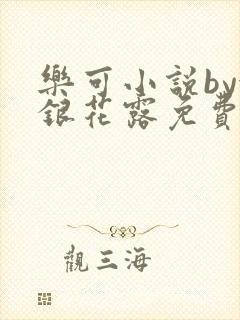 樂可小說by
銀花露免費
觀三海